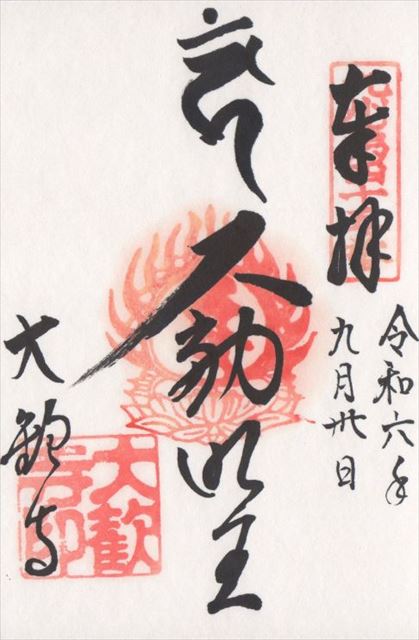 奉拝
令和六年
九月卅日
不動明王
大歓寺
大歓
寺印